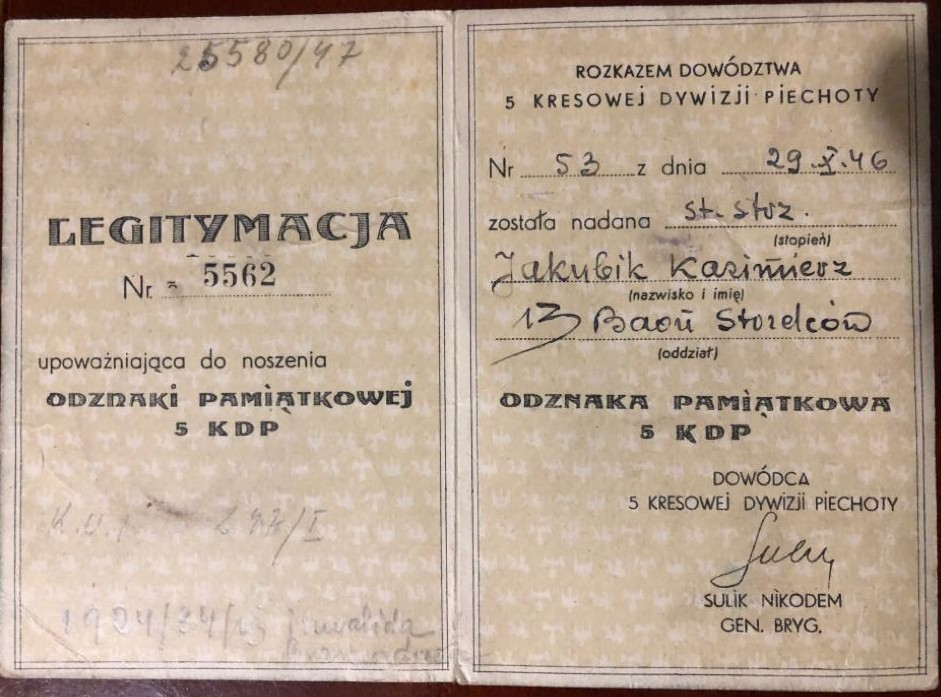 25580/47
LEGITYMACJA
Nr. 5562
upoważniająca do noszenia
ODZNAKI PAMIĄTKOWEJ
5 KDP
1904/34/ Inwalida
ROZKAZEM DOWÓDZTWA
5 KRESOWEJ DYWIZJI PIECHOTY
Nr 53 z dnia 29.X.46
została nadana st. strz.
(stopień)
Jakubik Kazimierz
(nazwisko i imię)
13 Baon Strzelców
(oddział)
ODZNAKA PAMIĄTKOWA
5 KDP
DOWÓDCA
5 KRESOWEJ DYWIZJI PIECHOTY
SULIK NIKODEM
GEN. BRYG.